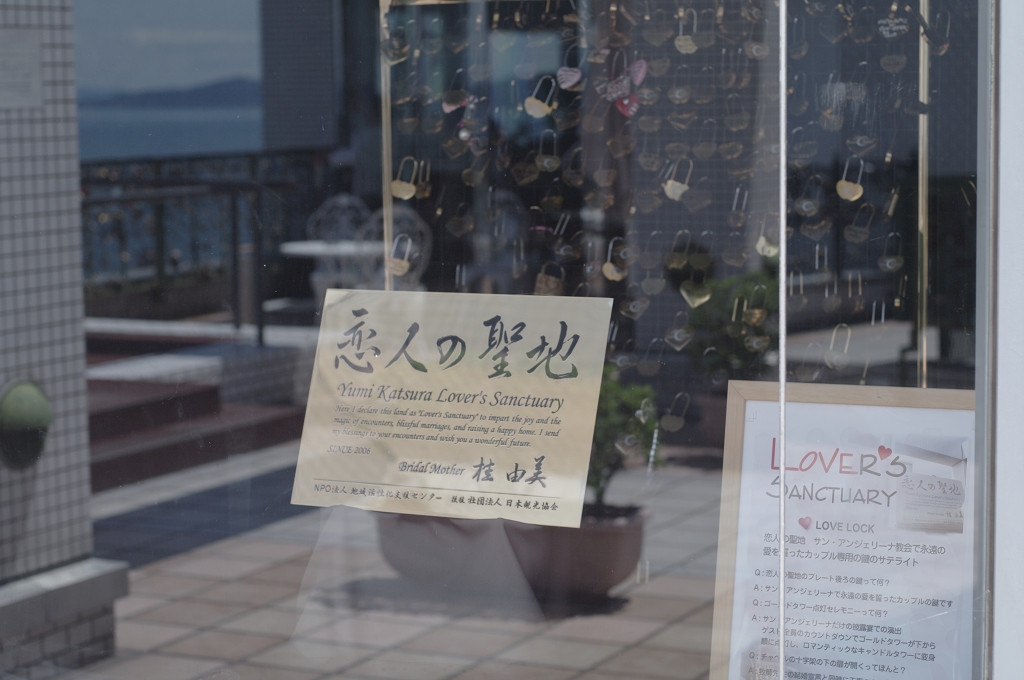 恋人の聖地
Yumi Katsura Lover's Sanctuary
Here I declare this land as "Lover's Sanctuary" to impart the joy and the
magic of encounters, blissful marriages, and raising a happy home. I send
my best wishes to your encounters and wish you a wonderful future.
SINCE 2006
Bridal Mother 桂 由美
NPO法人 地域活性化支援センター 後援 社団法人 日本観光協会
LOVER'S
SANCTUARY
恋人の聖地
LOVE LOCK
恋人の聖地 サン・アンジェリーナ教会で永遠の
愛を誓ったカップル専用の鍵のサテライト
Q:恋人の聖地のプレート後ろの鍵って何?
A:サン・アンジェリーナで永遠の愛を誓ったカップルの鍵です
Q:ゴールドタワー点灯セレモニーって何?
A:サン・アンジェリーナだけの披露宴での演出
ゲスト全員のカウントダウンでゴールドタワーが下から
順に点灯し、ロマンティックなキャンドルタワーに変身
Q:チャペルの十字架の下の扉が開くってほんと?